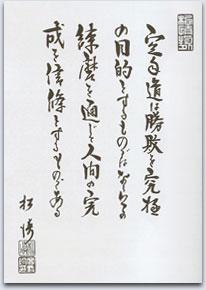 空手道は勝敗を究極
の目的とするものではなく心の
練磨を通じて人間の完
成を信條とするものである